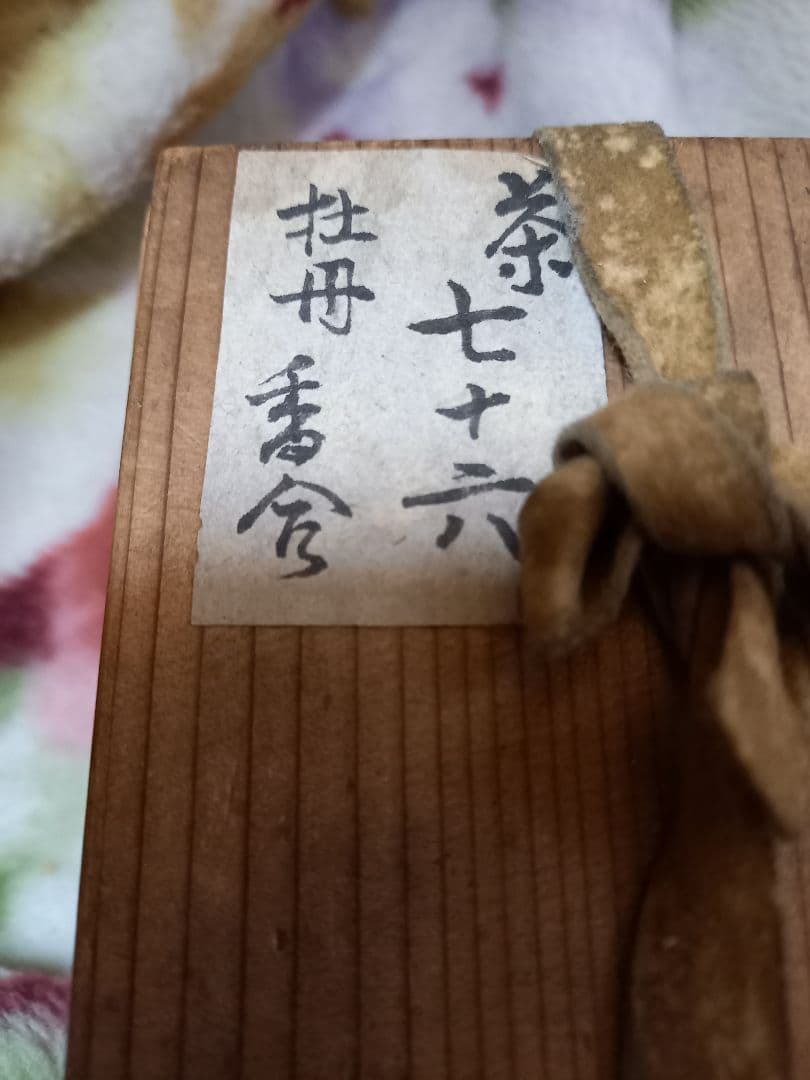 茶七十六
牡丹香合